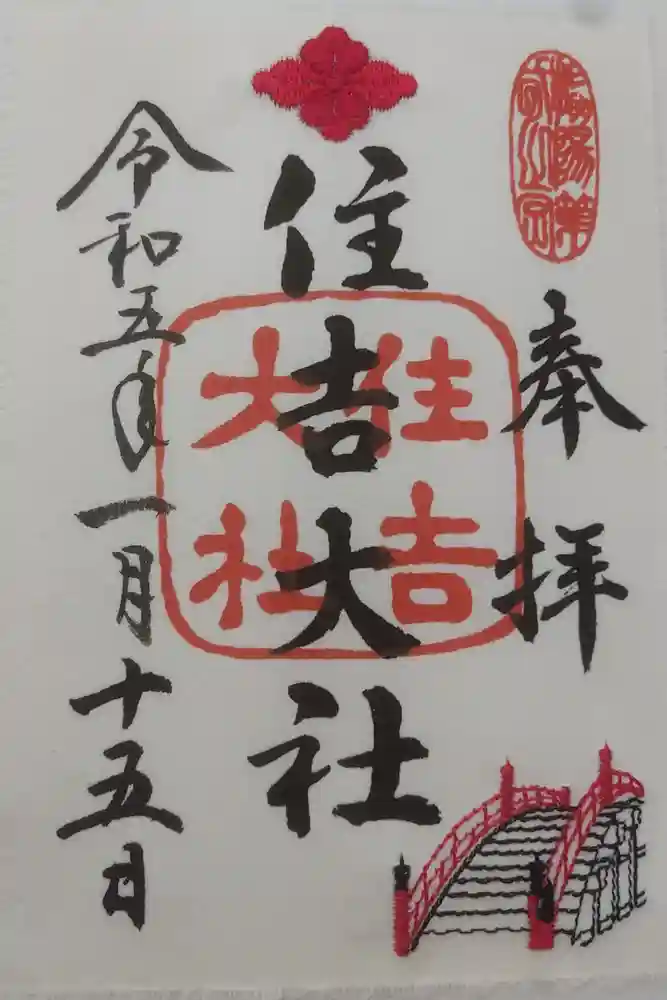 奉拝
住吉大社
住吉
大社
令和五年一月十五日